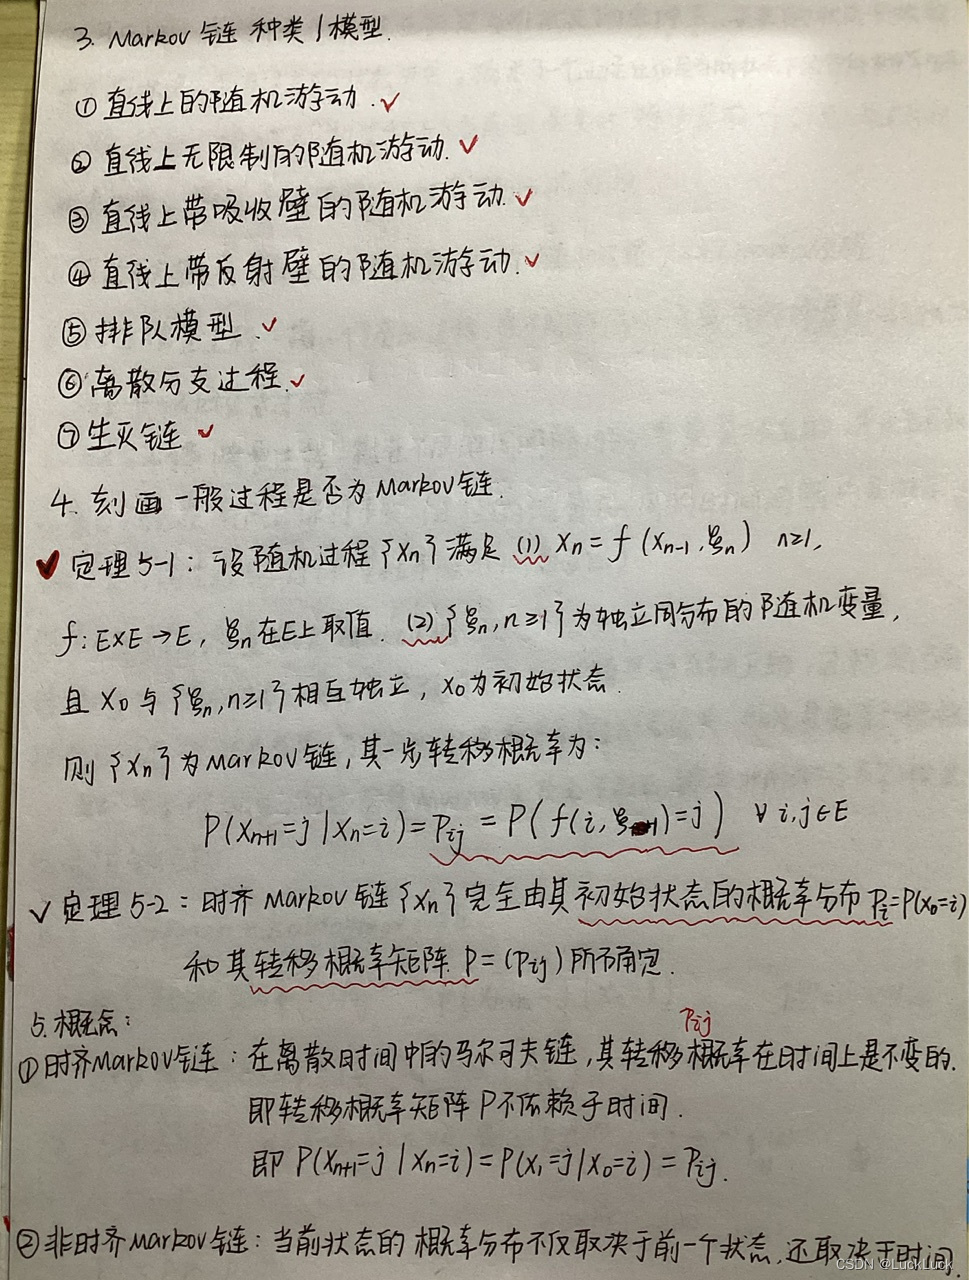 3. Markov 链 种类 / 模型.
① 直线上的随机游动. ✓
② 直线上无限制的随机游动. ✓
③ 直线上带吸收壁的随机游动. ✓
④ 直线上带反射壁的随机游动. ✓
⑤ 排队模型. ✓
⑥ 离散分支过程. ✓
⑦ 生灭链 ✓
4. 刻画一般过程是否为Markov链.
定理5-1: 设随机过程{Xn}满足 (1) Xn = f(Xn-1, ξn) n≥1,
f: E×E→E, ξn在E上取值. (2) {ξn, n≥1}为独立同分布的随机变量,
且 X0 与{ξn, n≥1}相互独立, X0为初始状态.
则{Xn}为Markov链, 其一步转移概率为:
P(Xn+1=j | Xn=i) = Pij = P(f(i, ξ)=j) ∀ i,j∈E
✓ 定理5-2: 时齐 Markov 链{Xn}完全由其初始状态的概率分布 Pi=P(X0=i)
和其转移概率矩阵 P=(Pij)所确定.
5. 概念:
Pij
① 时齐Markov链: 在离散时间中的马尔可夫链, 其转移概率在时间上是不变的.
即转移概率矩阵P不依赖于时间.
即 P(Xn+1=j | Xn=i) = P(X1=j | X0=i) = Pij.
② 非时齐Markov链: 当前状态的概率分布不仅取决于前一个状态, 还取决于时间.
CSDN @LuckLuck